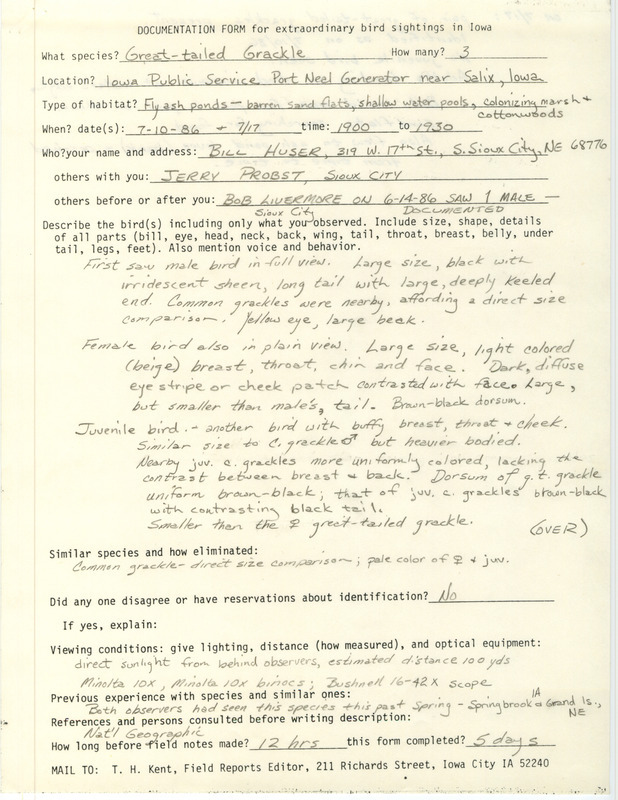 DOCUMENTATION FORM for extraordinary bird sightings in Iowa
What species? Great-tailed Grackle How many? 3
Location? Iowa Public Service Port Neal Generator near Salix, Iowa
Type of habitat? Fly ash ponds — barren sand flats, shallow water pools, colonizing marsh +
cottonwoods
When? date(s): 7-10-86 + 7/17 time: 1900 to 1930
Who? your name and address: BILL HUSER, 319 W. 17th St., S. Sioux City, NE 68776
others with you: JERRY PROBST, SIOUX CITY
others before or after you: BOB LIVERMORE ON 6-14-86 SAW 1 MALE —
Sioux City DOCUMENTED
Describe the bird(s) including only what you observed. Include size, shape, details
of all parts (bill, eye, head, neck, back, wing, tail, throat, breast, belly, under
tail, legs, feet). Also mention voice and behavior.
First saw male bird in full view. Large size, black with
irridescent sheen, long tail with large, deeply keeled
end. Common grackles were nearby, affording a direct size
comparison. Yellow eye, large beak.
Female bird also in plain view. Large size, light colored
(beige) breast, throat, chin and face. Dark, diffuse
eye stripe or cheek patch contrasted with face. Large,
but smaller than male's, tail. Brown-black dorsum.
Juvenile bird. - another bird with buffy breast, throat + cheek.
Similar size to C. grackle ♂ but heavier bodied.
Nearby juv. c. grackles more uniformly colored, lacking the
contrast between breast + back. Dorsum of g.t. grackle
uniform brown-black; that of juv. c. grackles brown-black
with contrasting black tail.
Smaller than the ♀ great-tailed grackle.
(OVER)
Similar species and how eliminated:
Common grackle - direct size comparison; pale color of ♀ + juv.
Did any one disagree or have reservations about identification? No
If yes, explain:
Viewing conditions: give lighting, distance (how measured), and optical equipment:
direct sunlight from behind observers, estimated distance 100 yds
Minolta 10x, Minolta 10x binocs; Bushnell 16-42X scope
Previous experience with species and similar ones:
Both observers had seen this species this past Spring - Springbrook IA + Grand Is., NE
References and persons consulted before writing description:
Nat'l Geographic
How long before field notes made? 12 hrs this form completed? 5 days
MAIL TO: T. H. Kent, Field Reports Editor, 211 Richards Street, Iowa City IA 52240